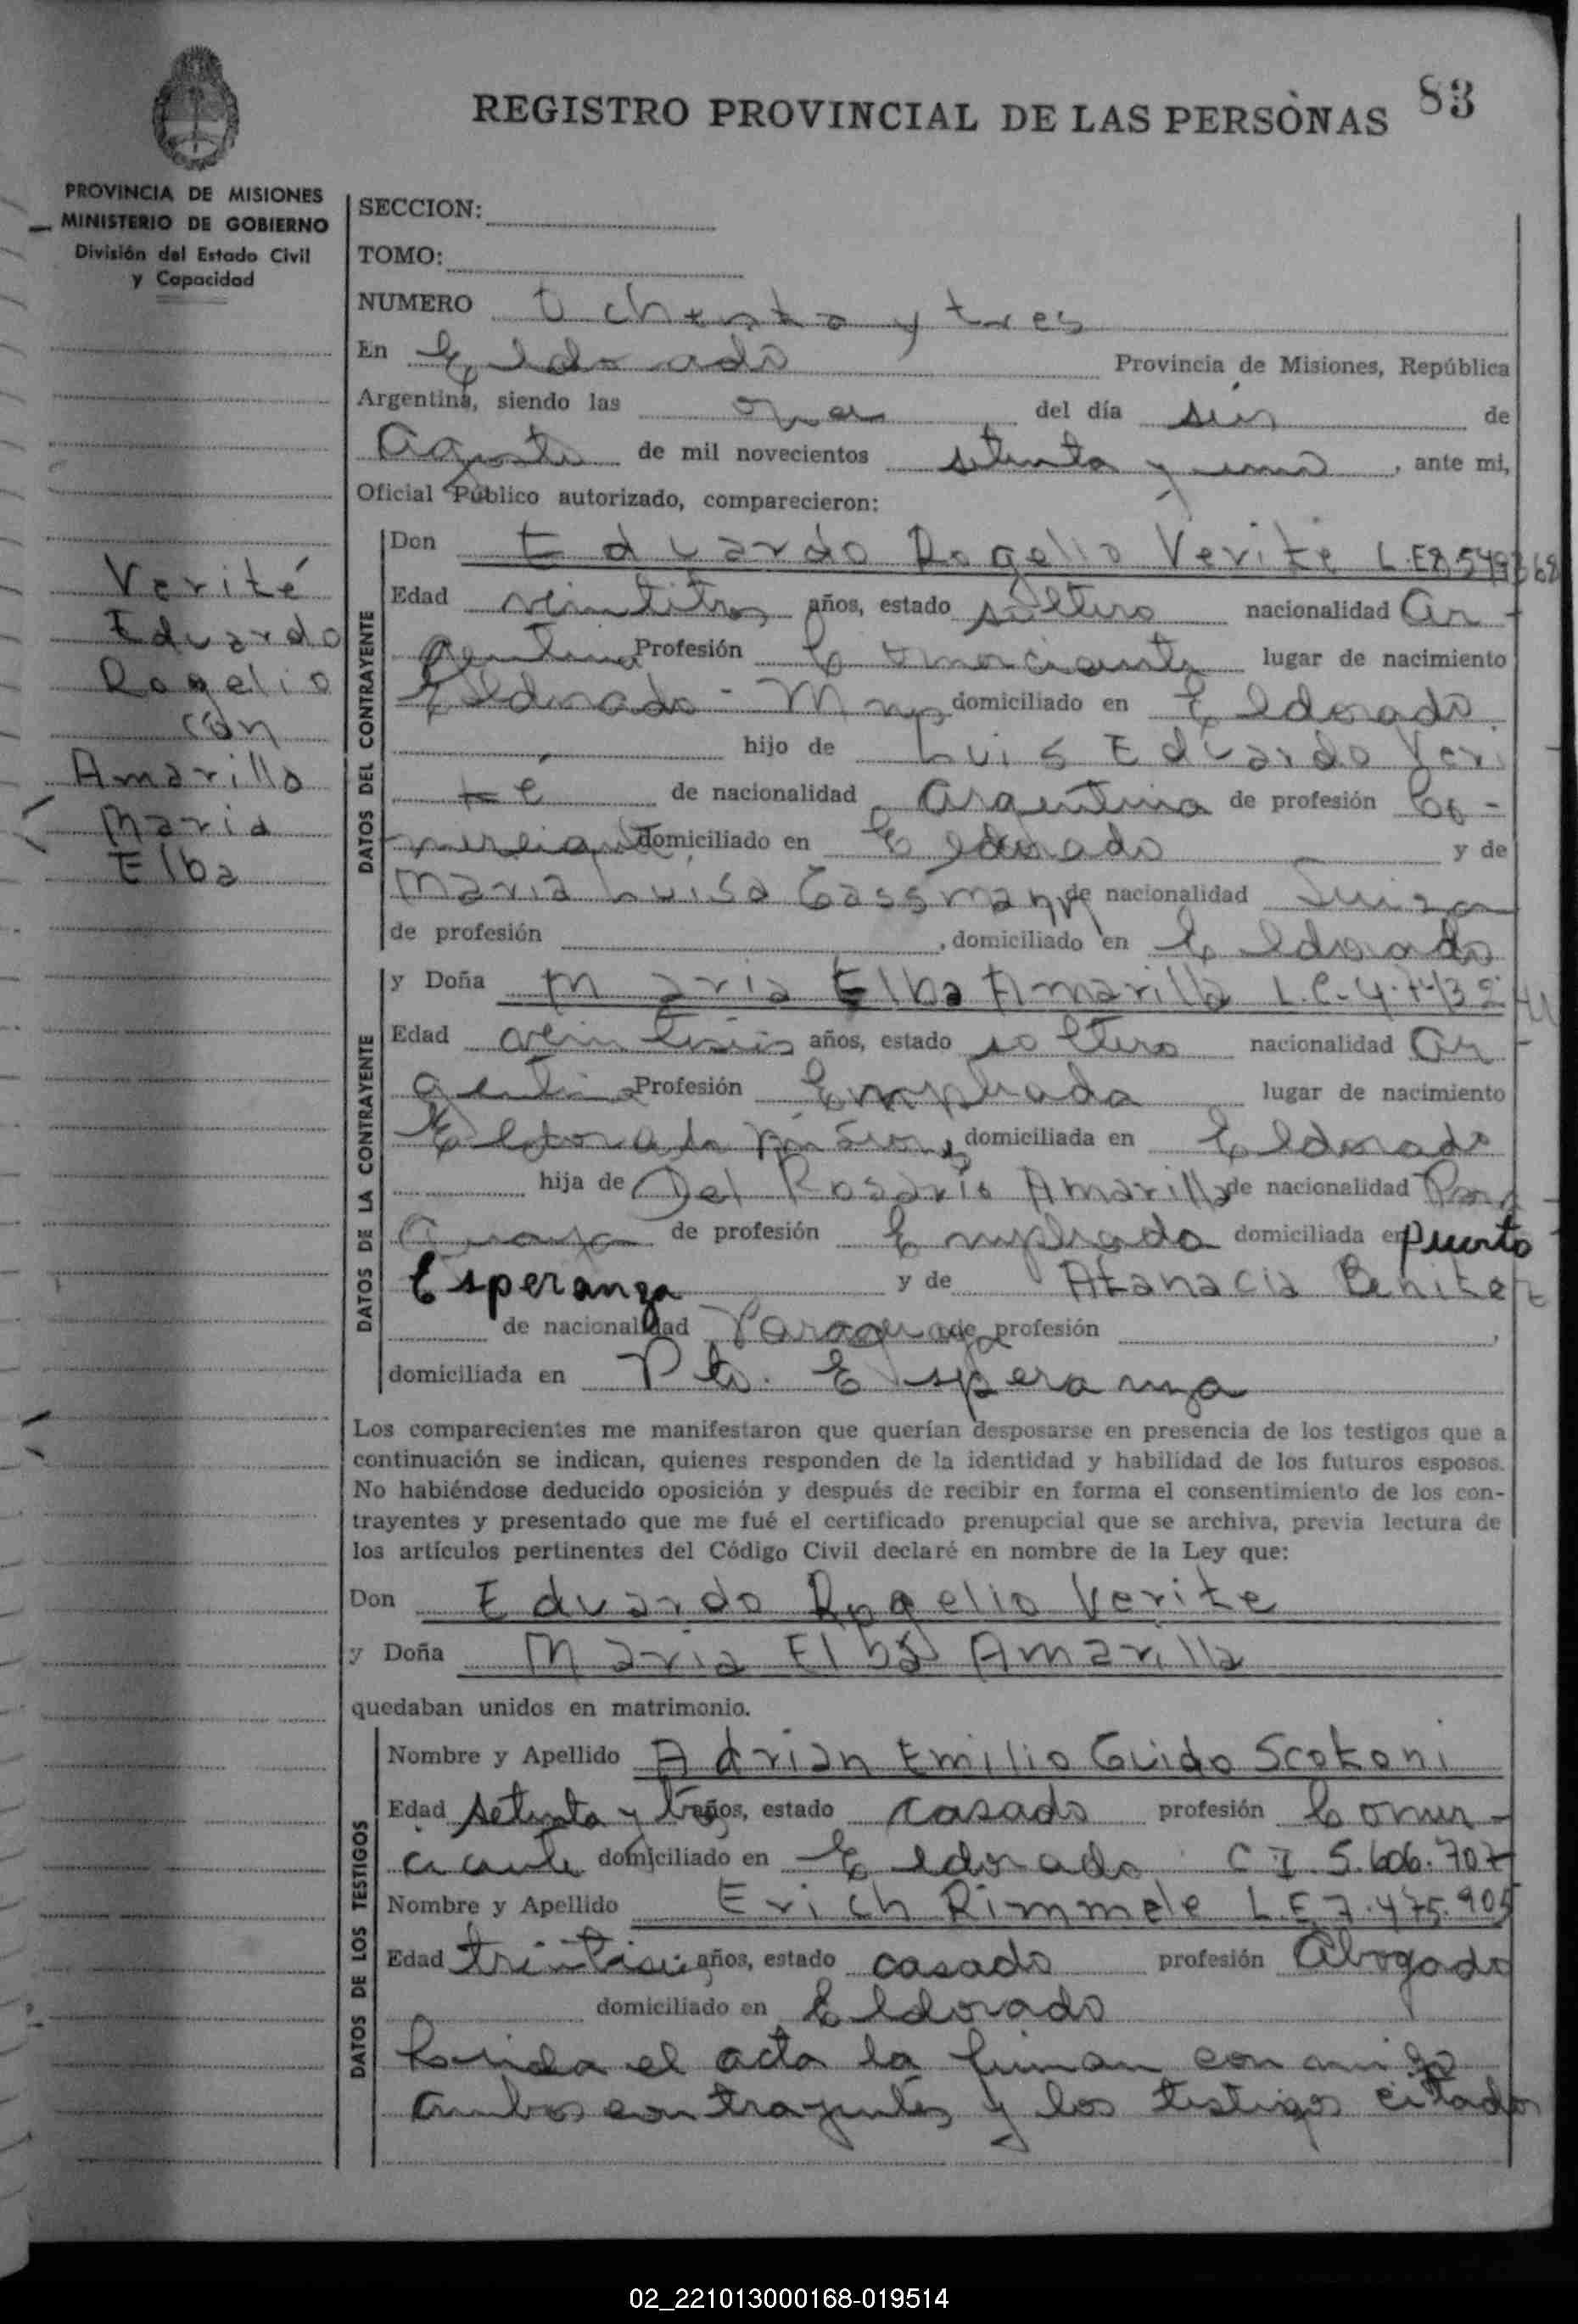 83
REGISTRO PROVINCIAL DE LAS PERSONAS
PROVINCIA DE MISIONES
MINISTERIO DE GOBIERNO
División del Estado Civil
y Capacidad
Verité
Eduardo
Rogelio
con
Amarilla
Maria
Elba
SECCION:
TOMO:
NUMERO Ochenta y tres
En Eldorado Provincia de Misiones, República
Argentina, siendo las once del día seis de
Agosto de mil novecientos setenta y uno, ante mi,
Oficial Público autorizado, comparecieron:
DATOS DEL CONTRAYENTE
Don Eduardo Rogelio Verite L.E 8.549368
Edad veintitres años, estado soltero nacionalidad Ar-
gentina Profesión Comerciante lugar de nacimiento
Eldorado - Mnes domiciliado en Eldorado
hijo de Luis Eduardo Veri
té de nacionalidad Argentina de profesión Co-
merciante domiciliado en Eldorado y de
Maria Luisa Gassmann de nacionalidad Suiza
de profesión , domiciliado en Eldorado
DATOS DE LA CONTRAYENTE
y Doña Maria Elba Amarilla L.C-4.
Edad veintiseis años, estado soltera nacionalidad Ar-
gentina Profesión Empleada lugar de nacimiento
Eldorado Misiones domiciliada en Eldorado
hija de Del Rosario Amarilla de nacionalidad Para-
guaya de profesión Empleado domiciliada en Puerto
Esperanza y de Atanacia Benitez
de nacionalidad Paraguaya de profesión ,
domiciliada en Pto. Esperanza
Los comparecientes me manifestaron que querían desposarse en presencia de los testigos que a
continuación se indican, quienes responden de la identidad y habilidad de los futuros esposos.
No habiéndose deducido oposición y después de recibir en forma el consentimiento de los con-
trayentes y presentado que me fué el certificado prenupcial que se archiva, previa lectura de
los artículos pertinentes del Código Civil declaré en nombre de la Ley que:
Don Eduardo Rogelio Verite
y Doña Maria Elba Amarilla
quedaban unidos en matrimonio.
DATOS DE LOS TESTIGOS
Nombre y Apellido Adrian Emilio Guido Scotoni
Edad setenta y tres años, estado casado profesión Comer-
ciante domiciliado en Eldorado C I 5.606.707
Nombre y Apellido Erich Rimmele L.E 7.475.905
Edad treintiseis años, estado casado profesión Abogado
domiciliado en Eldorado
Leida el acta la firman conmigo
ambos contrayentes y los testigos citados
02_221013000168-019514